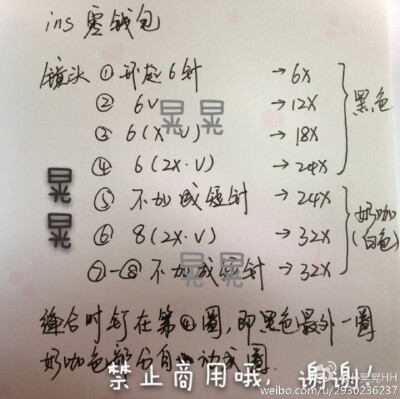 ins 零钱包
镜头 ① 环起6针 → 6X
② 6V → 12X
③ 6(X·V) → 18X
④ 6(2X·V) → 24X
黑色
⑤ 不加减短针 → 24X
⑥ 8(2X·V) → 32X
⑦—⑧ 不加减短针 → 32X
奶咖
(白色)
晃 晃
晃
晃
晃 晃
缝合时钉在第④圈,即黑色最外一圈
奶咖色部分自动成圈.
禁止商用哦,谢谢!
晃晃HH
weibo.com/u/2930236237